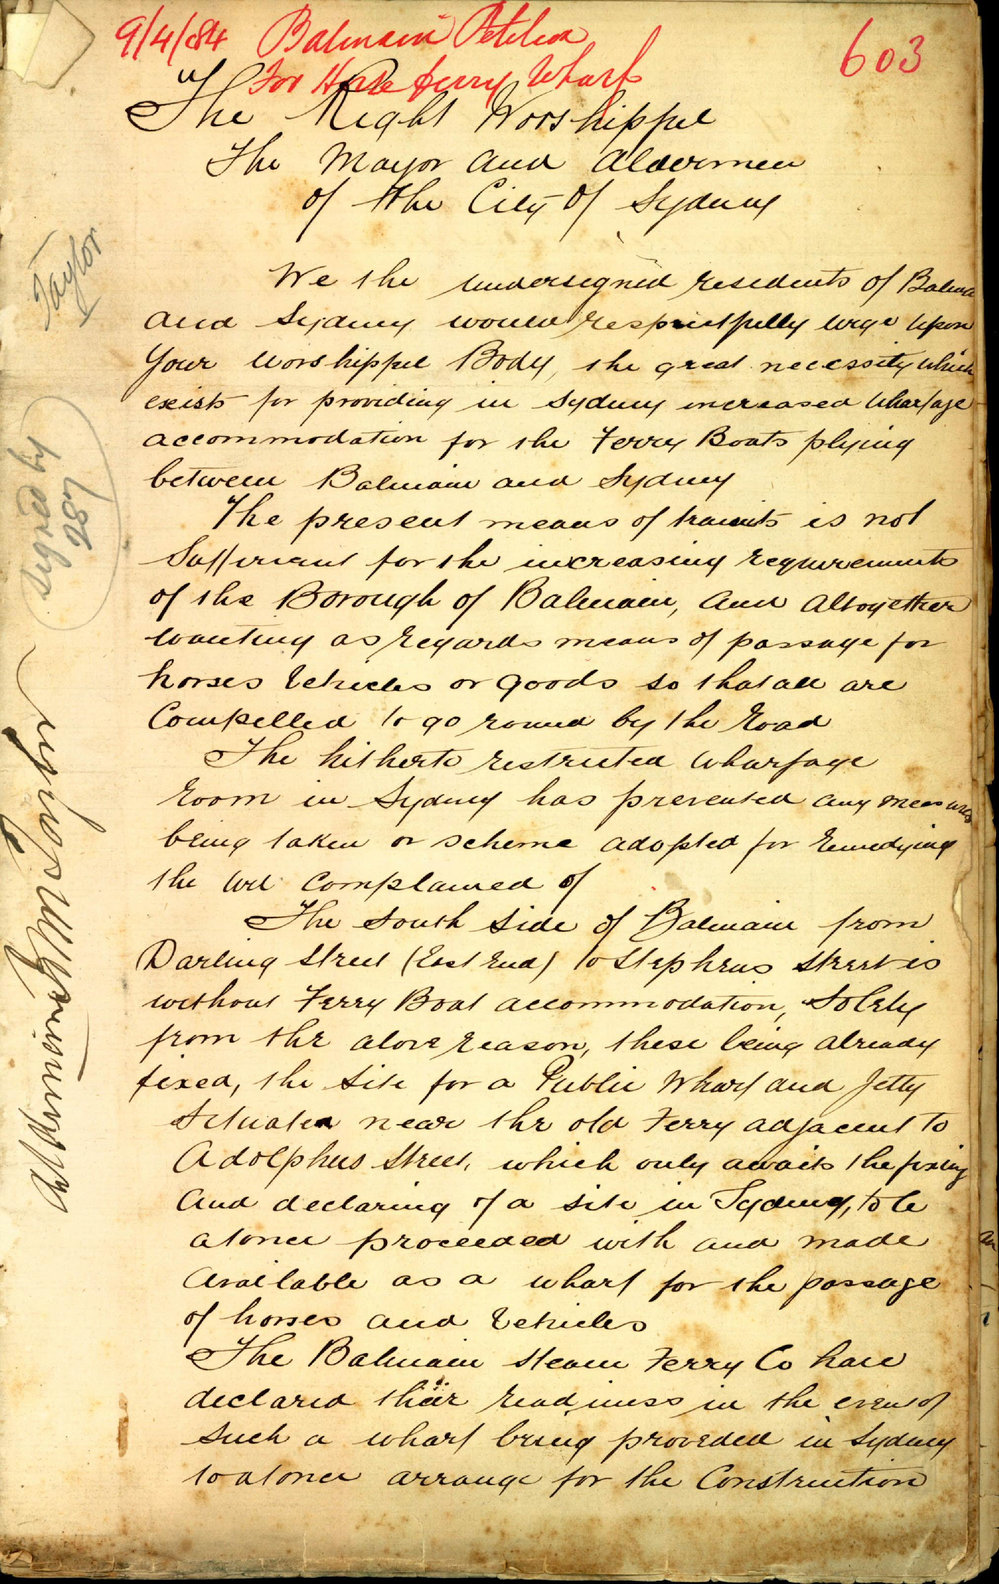 9/4/84 Balmain Petition
For Horse ferry Wharf
603
The Right Worshippel
The Mayor and Aldermen
of the City of Sydney
Taylor
signed by
287
Alderman Taylor
We the undersigned residents of Balmain
and Sydney would respectfully urge upon
your Worshippel Body, the great necessity which
exists for providing in Sydney increased Wharfage
accommodation for the Ferry Boats plying
between Balmain and Sydney
The present means of transits is not
Sufficient for the increasing requirements
of the Borough of Balmain, and altogether
wanting as regards means of passage for
horses Vehicles or goods so that all are
Compelled to go round by the Road
The hitherto restricted Wharfage
Room in Sydney has prevented any measures
being taken or scheme adopted for remedying
the evil complained of
The South Side of Balmain from
Darling Street (East End) to Stephens Street is
without Ferry Boat accommodation, Solely
from the above reason, these being already
fixed, the Site for a Public Wharf and Jetty
Situated near the old Ferry adjacent to
Adolphus Street, which only awaits the fixing
and declaring of a site in Sydney, to be
atonce proceeded with and made
available as a wharf for the passage
of horses and Vehicles
The Balmain Steam Ferry Co have
declared their readiness in the event of
Such a wharf being provided in Sydney
to atonce arrange for the Construction